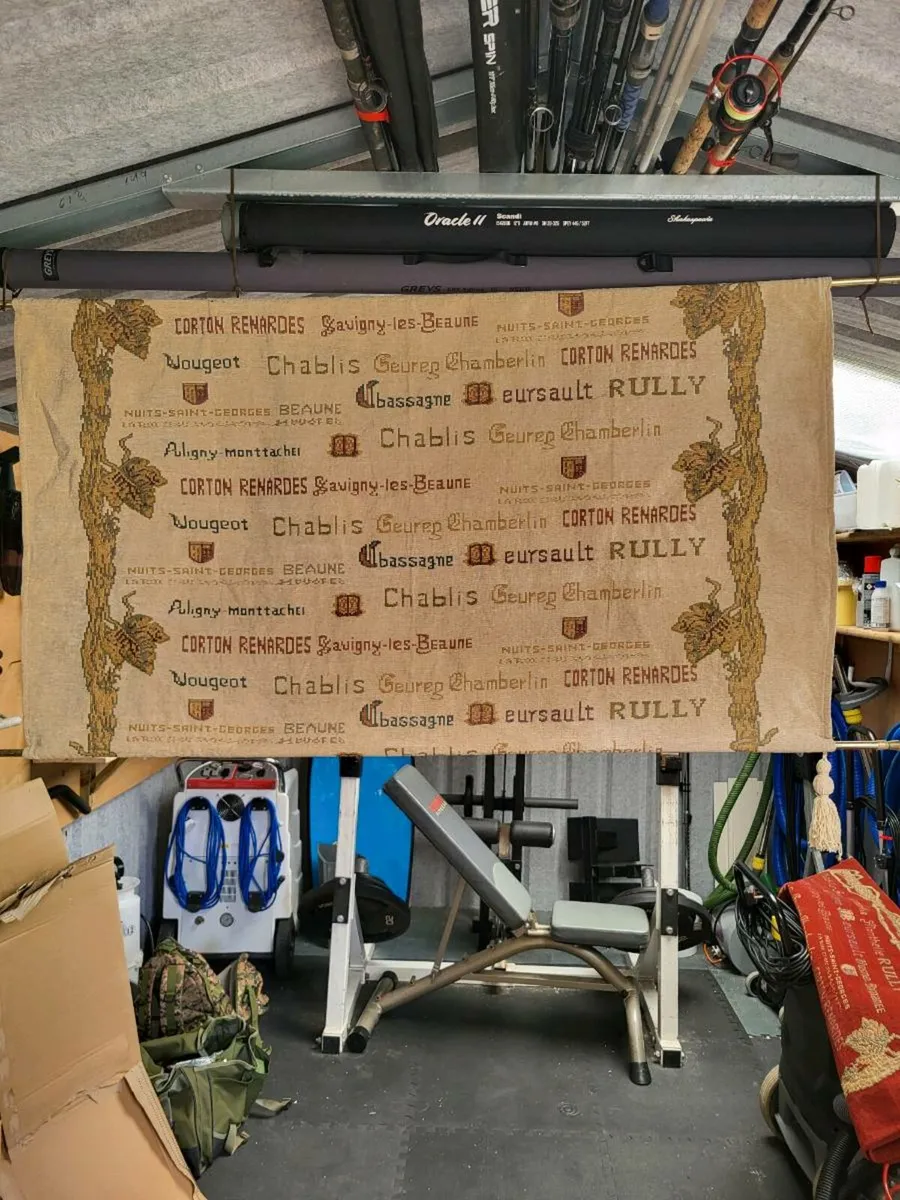 ER SPIN
Oracle II Scandi Shakespeare
GREYS
GREYS
CORTON RENARDES Savigny-les-Beaune NUITS-SAINT-GEORGES
Vougeot Chablis Geureg Chamberlin CORTON RENARDES
NUITS-SAINT-GEORGES BEAUNE Chassagne Meursault RULLY
Aligny-monttachei Chablis Geureg Chamberlin
CORTON RENARDES Savigny-les-Beaune NUITS-SAINT-GEORGES
Vougeot Chablis Geureg Chamberlin CORTON RENARDES
NUITS-SAINT-GEORGES BEAUNE Chassagne Meursault RULLY
Aligny-monttachei Chablis Geureg Chamberlin
CORTON RENARDES Savigny-les-Beaune NUITS-SAINT-GEORGES
Vougeot Chablis Geureg Chamberlin CORTON RENARDES
NUITS-SAINT-GEORGES BEAUNE Chassagne Meursault RULLY
Chablis Geureg Chamberlin
RULLY
NUITS-SAINT-GEORGES